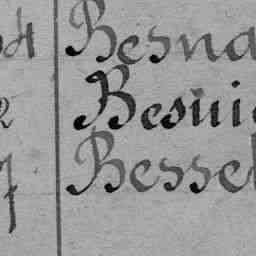 4 Besna
2 Besui
7 Bessel